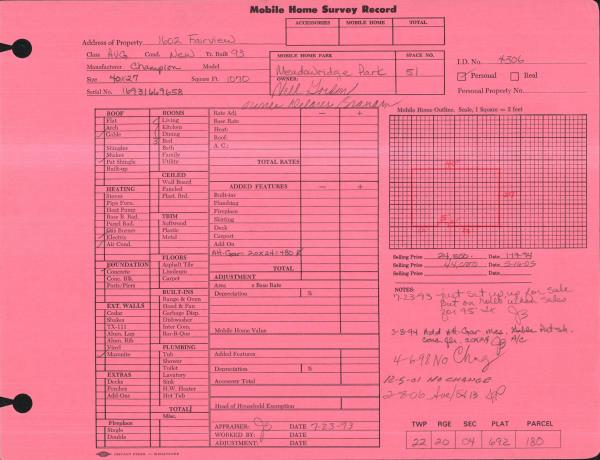 Mobile Home Survey Record
ACCESSORIES MOBILE HOME TOTAL
Address of Property 1602 Fairview
Class AVG Cond. New Yr. Built 93
Manufacturer Champion Model
Size 40x27 Square Ft. 1070
Serial No. 16931669658
MOBILE HOME PARK SPACE NO.
Meadowridge Park 51
OWNER:
I.D. No. 4306
Personal Real
Personal Property No.
ROOF
Flat
Arch
Gable
Shingles
Shakes
Pat Shingle
Built-up
HEATING
Stoves
Pipe Furn.
Heat Pump
Base B. Rad.
Panel Rad.
Gas Burner
Electric
Air Cond.
FOUNDATION
Concrete
Conc. Blk.
Posts/Piers
EXT. WALLS
Cedar
Shakes
TX-111
Alum. Lap
Alum. Rib
Vinyl
Masonite
EXTRAS
Decks
Porches
Add-Ons
Fireplace
Single
Double
ROOMS
Living
Kitchen
Dining
3 Bed
Bath
Family
Utility
CEILED
Wall Board
Paneled
Plast. Brd.
TRIM
Softwood
Plastic
Metal
FLOORS
Asphalt Tile
Linoleum
Carpet
BUILT-INS
Range & Oven
Hood & Fan
Garbage Disp.
Dishwasher
Inter Com.
Bar-B-Que
PLUMBING
Tub
Shower
Toilet
Lavatory
Sink
H.W. Heater
Hot Tub
TOTAL
Misc.
Rate Adj. − +
Base Rate
Heat:
Roof:
A. C.:
TOTAL RATES
ADDED FEATURES − +
Built-ins
Plumbing
Fireplace
Skirting
Deck
Carport
Add On
Att-Gar 20x24=480
TOTAL
ADJUSTMENT
Area x Base Rate
Depreciation %
Mobile Home Value
Added Features
Depreciation %
Accessory Total
Head of Household Exemption
APPRAISER: DATE 7-23-93
WORKED BY: DATE
ADJUSTMENT: DATE
Mobile Home Outline. Scale, 1 Square = 2 feet
Selling Price Date 1-19-94
Selling Price 44,000 Date 5-16-05
Selling Price Date
NOTES:
7-23-93 just set up up for sale
Put on rolls when sales
for 95
3-8-94 Add Att-Gar
A/c
4-6-98 No Chng
12-5-01 NO CHANGE
2-8-06
TWP RGE SEC PLAT PARCEL
22 20 04 692 180